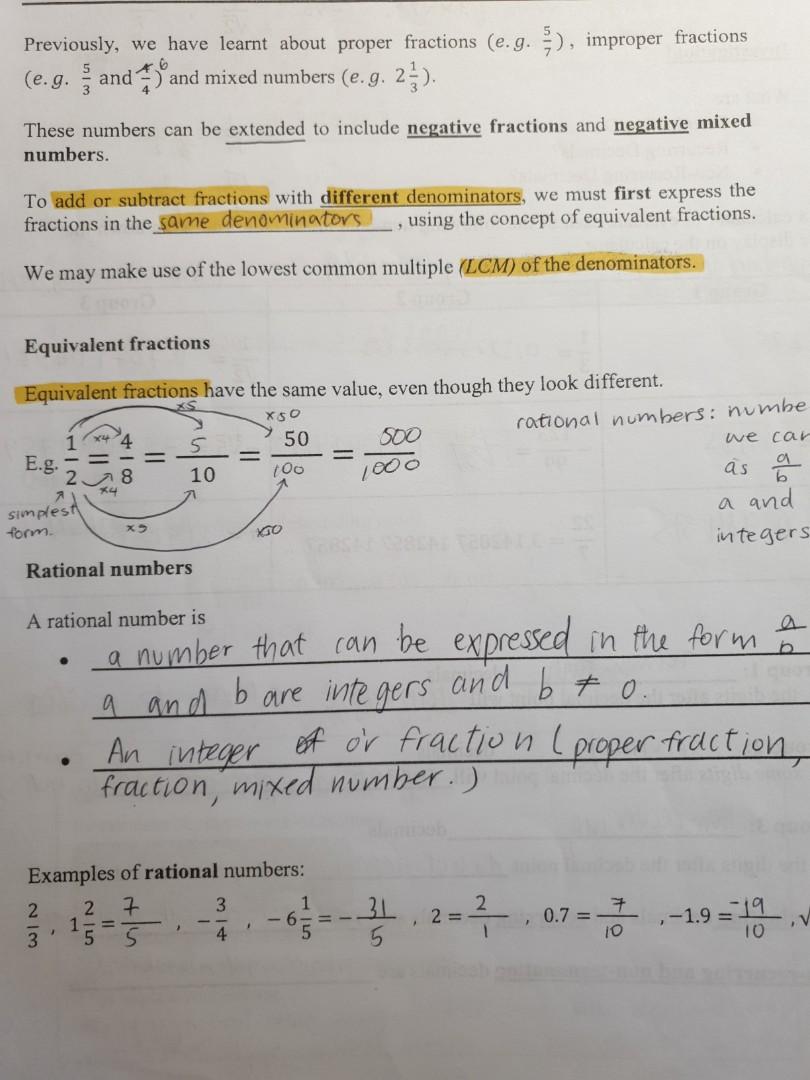 Previously, we have learnt about proper fractions (e.g. 5/7), improper fractions
(e.g. 5/3 and 6/4) and mixed numbers (e.g. 2 1/3).
These numbers can be extended to include negative fractions and negative mixed
numbers.
To add or subtract fractions with different denominators, we must first express the
fractions in the same denominators, using the concept of equivalent fractions.
We may make use of the lowest common multiple (LCM) of the denominators.
Equivalent fractions
Equivalent fractions have the same value, even though they look different.
x5
x50
E.g. 1/2 = 4/8 = 5/10 = 50/100 = 500/1000
x4
x4
simplest
form.
x5
x50
rational numbers: numbe
we can
as a/b
a and
integers
Rational numbers
A rational number is
• a number that can be expressed in the form a/b
a and b are integers and b ≠ 0.
• An integer or fraction (proper fraction,
fraction, mixed number.)
Examples of rational numbers:
2/3, 1 2/5 = 7/5, -3/4, -6 1/5 = -31/5, 2 = 2/1, 0.7 = 7/10, -1.9 = -19/10, √